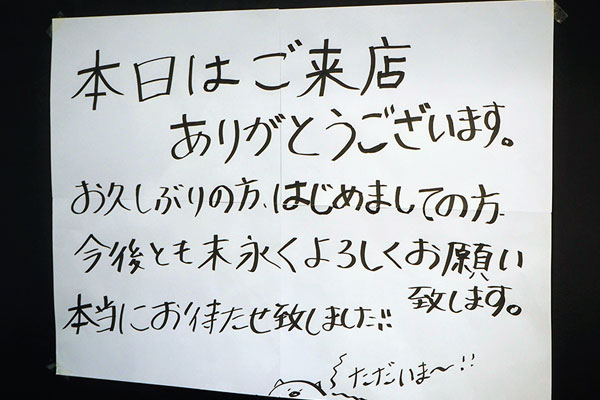 本日はご来店
ありがとうございます。
お久しぶりの方、はじめましての方
今後とも末永くよろしくお願い
致します。
本当にお待たせ致しました!!
ただいま〜!!